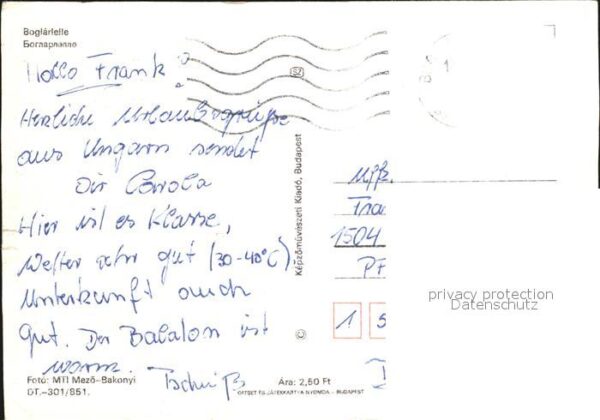 Boglárlelle
Богларлелле
Hallo Frank!
Herzliche Urlaubsgrüße
aus Ungarn sendet
Dir Carola
Hier ist es Klasse,
Wetter sehr gut (30-40°C),
Unterkunft auch
gut. Der Balaton ist
warm.
Tschüß
Foto: MTI Mező-Bakonyi
GT.-301/851.
Ára: 2,50 Ft
OFFSET ÉS JÁTÉKKÁRTYA NYOMDA - BUDAPEST
Képzőművészeti Kiadó, Budapest
SZ
Uffz.
Fra
1504
PF
1 5
privacy protection
Datenschutz